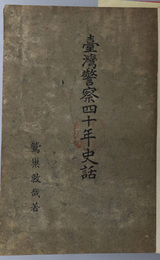 臺灣警察四十年史話
鷲巢敦哉著